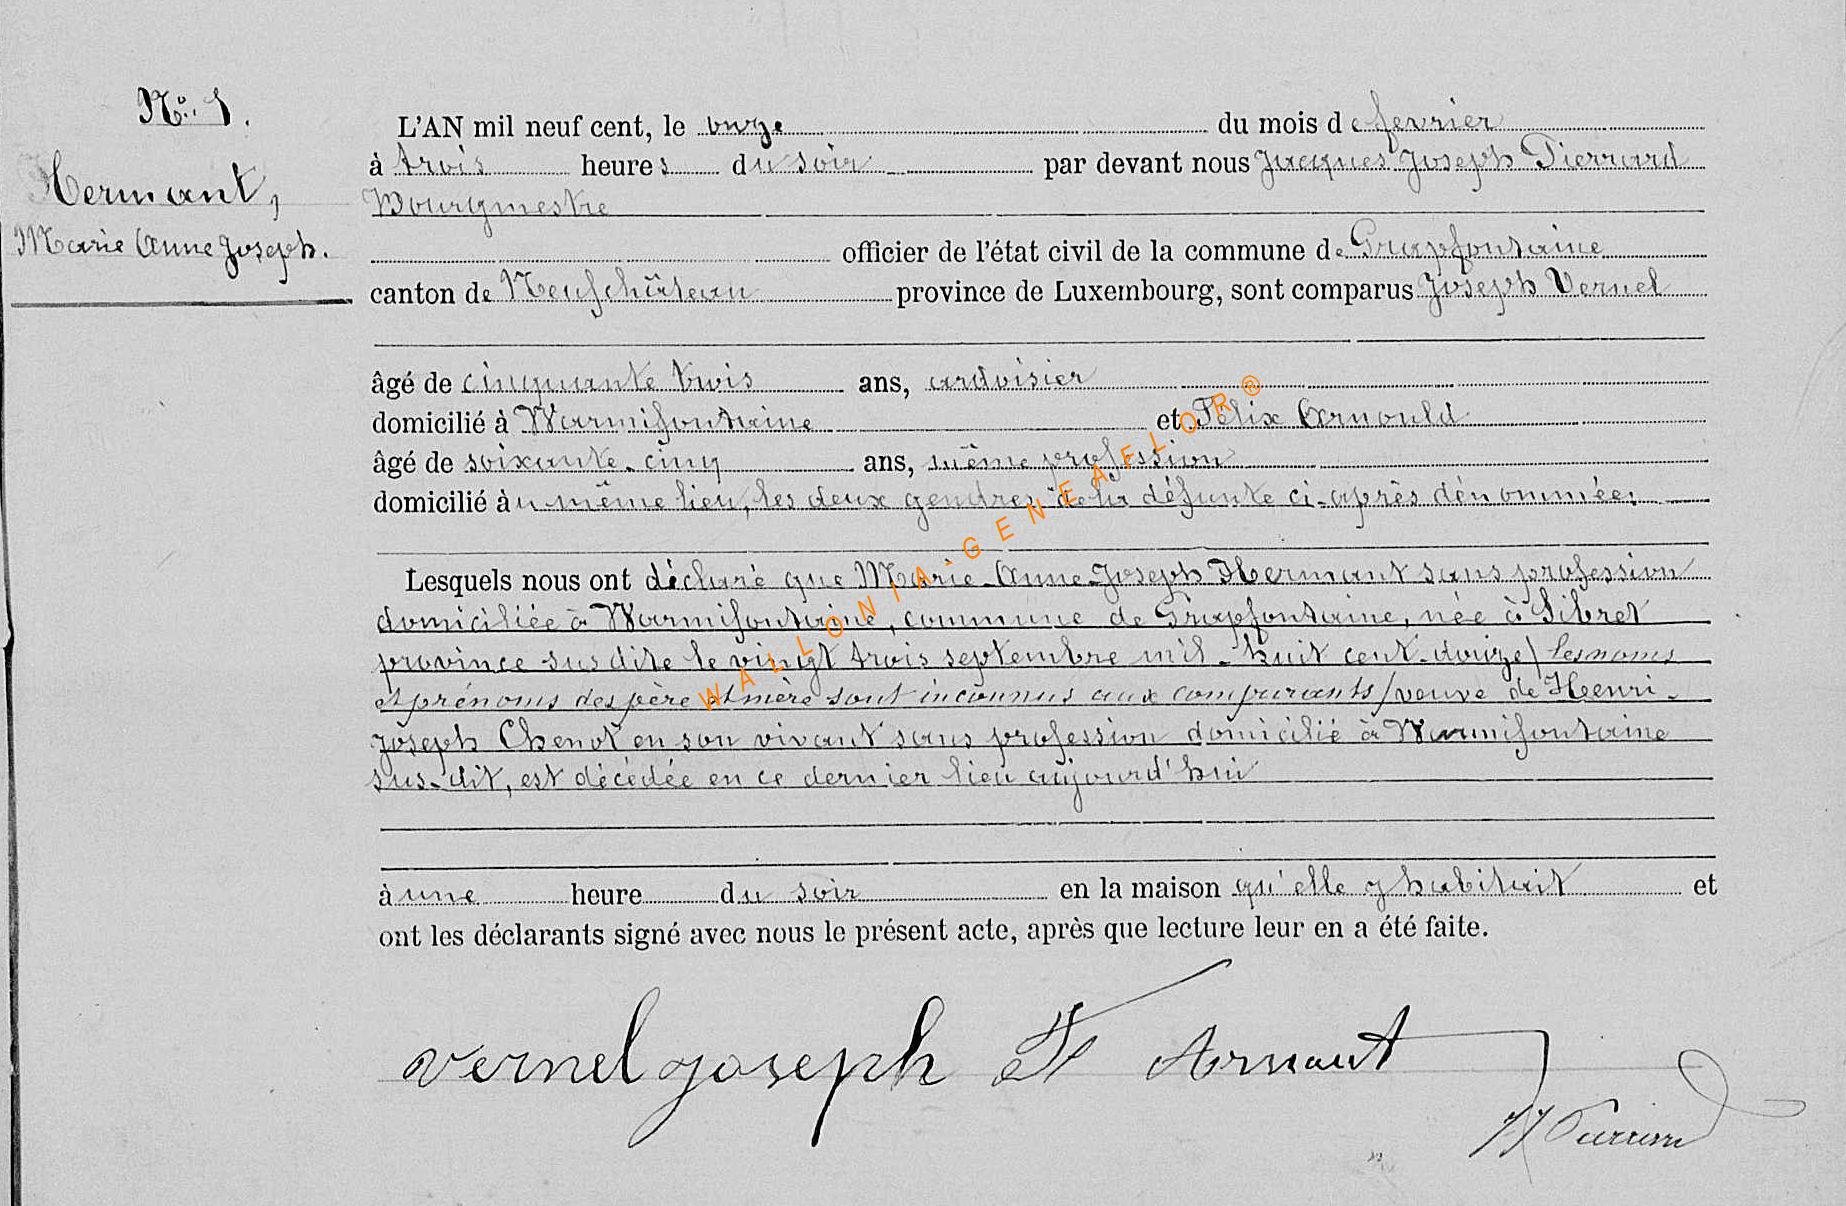 N° 1.
Hermant,
Marie Anne Joseph.
L'AN mil neuf cent, le onze du mois de fevrier
à trois heures du soir par devant nous Jacques Joseph Pierrard
Bourgmestre
officier de l'état civil de la commune de Grapfontaine
canton de Neufchâteau province de Luxembourg, sont comparus Joseph Vernel
âgé de cinquante trois ans, ardoisier
domicilié à Warmifontaine et Félix Arnould
âgé de soixante-cinq ans, même profession
domicilié àu même lieu, les deux gendres de la défunte ci-après dénommée;
Lesquels nous ont déclaré que Marie-Anne-Joseph Hermant sans profession
domiciliée à Warmifontaine, commune de Grapfontaine, née à Sibret
province susdite le vingt trois septembre mil-huit cent-douze/ les noms
et prénoms des père et mère sont inconnus aux comparants/ veuve de Henri-
Joseph Chenot en son vivant sans profession domicilié à Warmifontaine
sus-dit, est décédée en ce dernier lieu aujourd'hui
à une heure du soir en la maison qu'elle y habitait et
ont les déclarants signé avec nous le présent acte, après que lecture leur en a été faite.
vernel joseph Arnout
WALLONIA-GENEAFLOR®